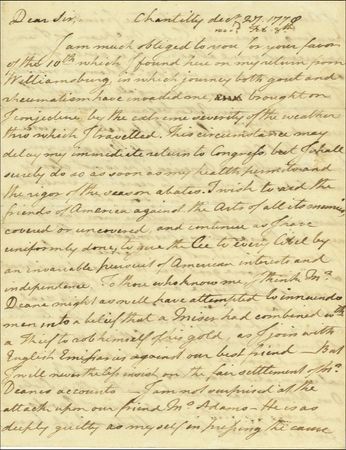 Dear Sir, Chantilly decr 27. 1778
recd Feb 8th
I am much obliged to you for your favor
of the 10th which I found here on my return from
Williamsburg, in which journey both gout and
rheumatism have invaded me, brought on
I conjecture by the extreme severity of the weather
thro which I travelled. This circumstance may
delay my immediate return to Congress, but I shall
surely do so as soon as my health permits and
the rigor of the season abates. I wish to aid the
friends of America against the Arts of all its enemies
covered or uncovered, and continue as I have
uniformly done, to give the to every by
an invariable pursuit of American interests and
independence. To those who know me I think Mr.
Deane might as well have attempted to innuendo
men into a belief that a Miser had combined with
a Thief to rob himself of his gold, as I join with
English Emissaries against our best friend — But
I will never the less insist on the fair settlement of Mr.
Deanes accounts — I am not surprised at the
attack upon our friend Mr. Adams — He is as
deeply guilty as myself in pressing the cause